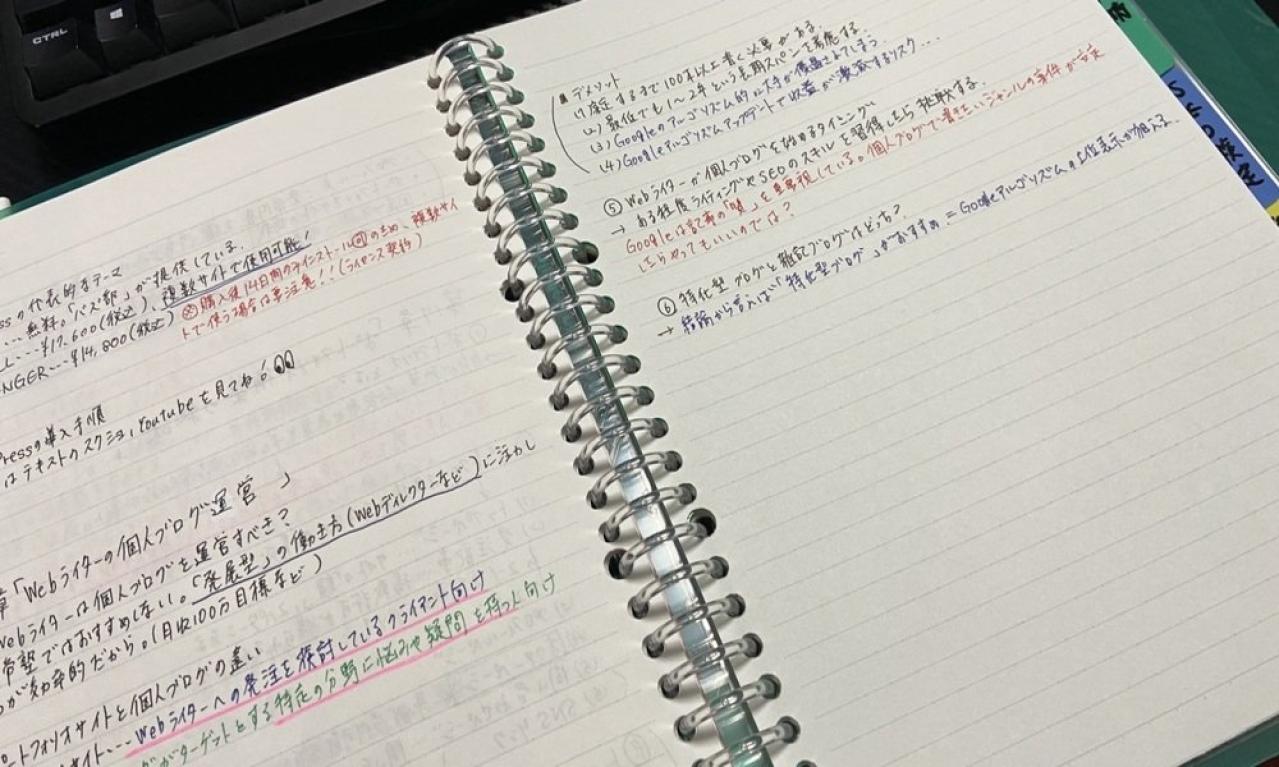 CTRL
ssの代表的なテーマ
…無料。「バズ部」が提供している。
L…¥17,600(税込)、複数サイトで使用可能!
NGER…¥14,800(税込)
※購入後14日間のアンインストール可のため、複数サイ
トで使う場合は要注意!!(ライセンス契約)
Pressの導入手順
はテキストのスクショ、Youtubeを見てね!
章「Webライターの個人ブログ運営」
Webライターは個人ブログを運営すべき?
希望ではおすすめしない。「発展型」の働き方(Webディレクターなど)に注力し
が効率的だから。(月収100万目標など)
ートフォリオサイトと個人ブログの違い
サイト…Webライターへの発注を検討しているクライアント向け
グがターゲットとする特定の分野に悩みや疑問を持つ人向け
■デメリット
(1)安定するまで100本以上書く必要がある。
(2)最低でも1〜2年という長期スパンを考慮する。
(3)Googleのアルゴリズム的に大手が優遇されてしまう。
(4)Googleアルゴリズムアップデートで収益が激減するリスク…
⑤Webライターが個人ブログを始めるタイミング
→ある程度ライティングやSEOのスキルを習得したら挑戦する。
Googleは記事の「質」を重要視している。個人ブログで書きたいジャンルの案件が安定
したらやってもいいのでは?
⑥特化型ブログと雑記ブログはどっち?
→結論から言えば「特化型ブログ」がおすすめ=Googleアルゴリズムの上位表示が狙える。
検定